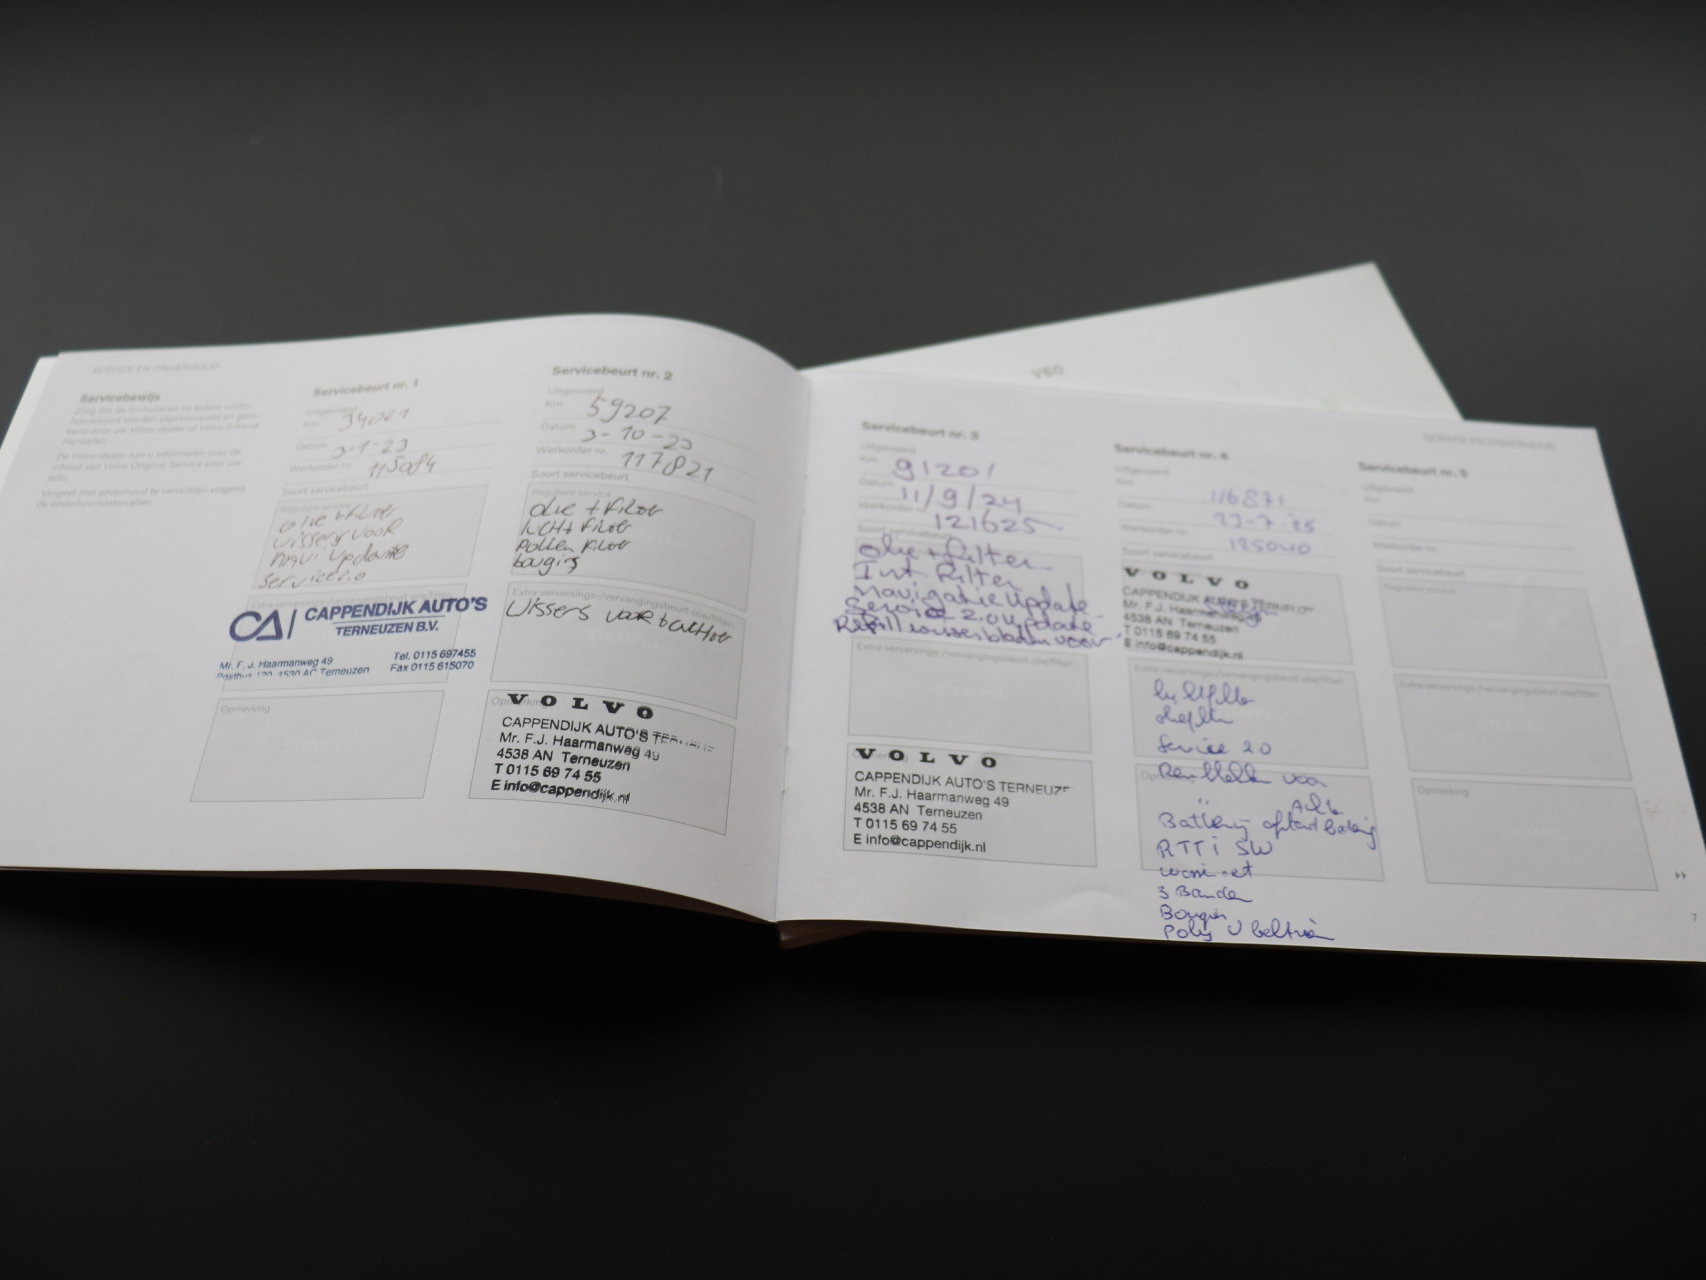 SERVICE EN ONDERHOUD
Servicebewijs
Zorg dat de formulieren na iedere onder-
houdsbeurt worden afgestempeld en gete-
kend door uw Volvo-dealer of Volvo Erkend
Hersteller.
De Volvo-dealer kan u informeren over de
inhoud van Volvo Original Service voor uw
auto.
Vergeet niet onderhoud te verrichten volgens
de onderhoudsintervallen.
Servicebeurt nr. 1
Uitgevoerd
Km 34021
Datum 3-1-23
Werkorder nr. 115084
Soort servicebeurt
Reguliere service
olie + filter
wissers voor
navi update
service 2.0
CAPPENDIJK AUTO'S
TERNEUZEN B.V.
Mr. F. J. Haarmanweg 49 Tel. 0115 697455
Postbus 120, 4530 AC Terneuzen Fax 0115 615070
Opmerking
Servicebeurt nr. 2
Uitgevoerd
Km 59207
Datum 3-10-23
Werkorder nr. 117821
Soort servicebeurt
Reguliere service
olie + filter
lucht filter
pollen filter
bougies
Extra verversings-/vervangingsbeurt olie/filter:
wissers voor + achter
Opmerking
VOLVO
CAPPENDIJK AUTO'S
Mr. F.J. Haarmanweg 49
4538 AN Terneuzen
T 0115 69 74 55
E info@cappendijk.nl
V60
Servicebeurt nr. 3
Uitgevoerd
Km 91201
Datum 11/9/24
Werkorder nr. 121625
Soort
olie + filter
Int filter
navigatie update
Service 2.0 update
Refill wisserbladen voor
Extra verversings-/vervangingsbeurt olie/filter:
VOLVO
CAPPENDIJK AUTO'S TERNEUZE
Mr. F.J. Haarmanweg 49
4538 AN Terneuzen
T 0115 69 74 55
E info@cappendijk.nl
SERVICE EN ONDERHOUD
Servicebeurt nr. 4
Uitgevoerd
Km 116871
Datum 23-7-25
Werkorder nr. 125040
Soort servicebeurt
VOLVO
CAPPENDIJK AUTO'S TERNEUZ
Mr. F.J. Haarmanweg
4538 AN Terneuzen
T 0115 69 74 55
E info@cappendijk.nl
Extra verversings-/vervangingsbeurt olie/filter:
Service 20
voor
Battery
RTTI SW
3 Banden
Bougies
Poly V
Servicebeurt nr. 5
Uitgevoerd
Km
Datum
Werkorder nr.
Soort servicebeurt
Reguliere service
Extra verversings-/vervangingsbeurt olie/filter:
Opmerking
7